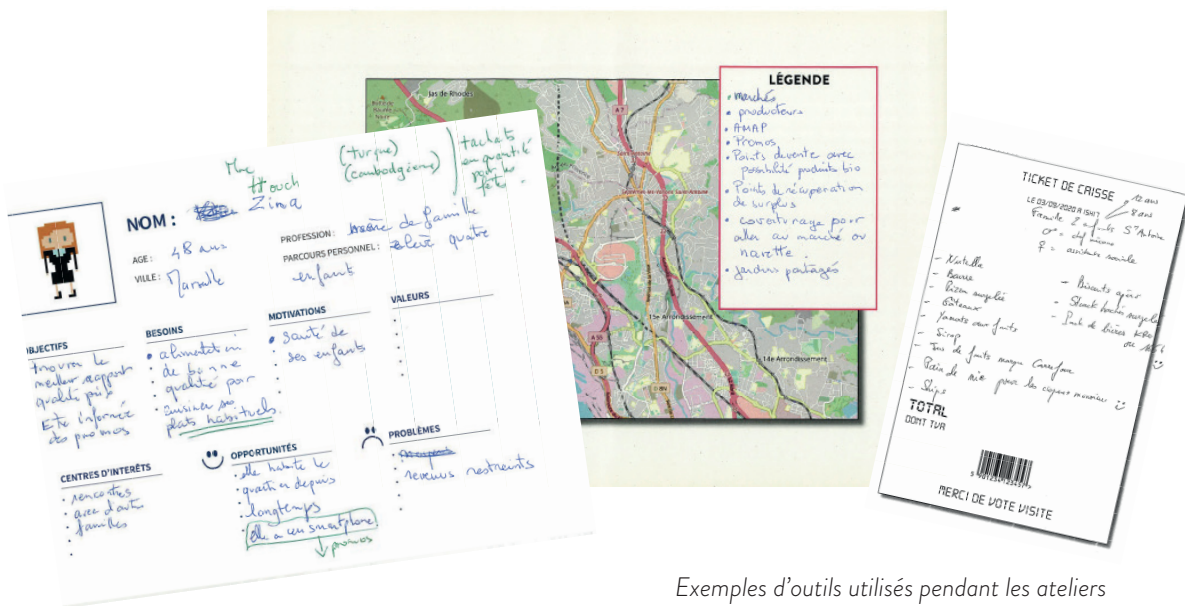 Mme
Houch
Zima
(turque)
(cambodgienne)
+ achats
en quantité
pour les
fêtes.
NOM :
AGE : 48 ans
VILLE : Marseille
PROFESSION : mère de famille
PARCOURS PERSONNEL : élève quatre
enfants
OBJECTIFS
trouver le
meilleur rapport
qualité prix
Etre informée
des promos
BESOINS
• alimentation
• de bonne
• qualité pour
• cuisiner ses
plats habituels.
MOTIVATIONS
• santé de
• ses enfants
VALEURS
CENTRES D'INTERÊTS
• rencontres
• avec d'autres
• familles
OPPORTUNITÉS
• elle habite le
• quartier depuis
• longtemps
elle a un smartphone
↓ promos
PROBLÈMES
• revenus restreints
Jas de Rhodes
A 7
Saint-Antoine
15e Arrondissement
14e Arrondissement
A 55
D 5
LÉGENDE
• marchés
• producteurs
• AMAP
• Promos
• Points de vente avec
possibilité produits bio
• Points de récupération
de surplus
• covoiturage pour
aller au marché ou
navette.
• jardins partagés
TICKET DE CAISSE
LE 03/09/2020 A 15H17
12 ans
8 ans
Famille 2 enfants St Antoine
♀ = assistante sociale
- Nutella
- Beurre
- Pizza surgelée
- Gâteaux
- Yaourts aux fruits
- Sirop
- Jus de fruits marque Carrefour
- Pain de mie pour les croques monsieur
- Chips
- Biscuits apéro
- Steack haché surgelé
- Pack de bières
TOTAL
DONT TVA
MERCI DE VOTE VISITE
Exemples d'outils utilisés pendant les ateliers